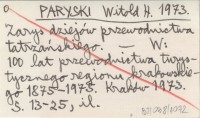 PARYSKI Witold H. 1973.
Zarys dziejów przewodnictwa
tatrzańskiego. — W:
100 lat przewodnictwa turys-
tycznego regionu krakowskie-
go 1875-1975. Kraków 1973.
S. 13-25; il.